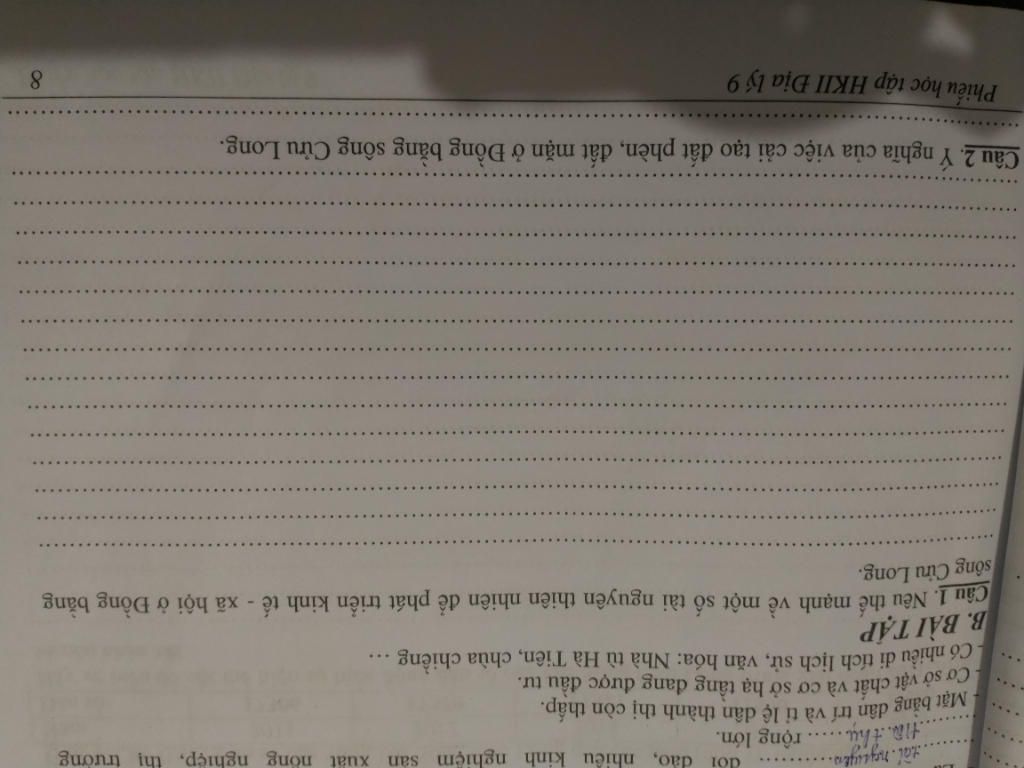 dồi dào, nhiều kinh nghiệm sản xuất nông nghiệp, thị trường
tiêu thụ rộng lớn.
- Mặt bằng dân trí và tỉ lệ dân thành thị còn thấp.
- Cơ sở vật chất và cơ sở hạ tầng đang được đầu tư.
- Có nhiều di tích lịch sử, văn hóa: Nhà tù Hà Tiên, chùa chiềng ...
B. BÀI TẬP
Câu 1. Nêu thế mạnh về một số tài nguyên thiên nhiên để phát triển kinh tế - xã hội ở Đồng bằng
sông Cửu Long.
Câu 2. Ý nghĩa của việc cải tạo đất phèn, đất mặn ở Đồng bằng sông Cửu Long.
Phiếu học tập HKII Địa lý 9 8